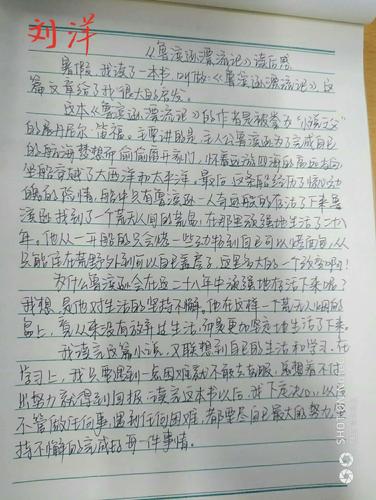 刘洋
《鲁滨逊漂流记》读后感
暑假,我读了一本书,叫做《鲁滨逊漂流记》,这
篇文章给了我很大的启发。
这本《鲁滨逊漂流记》的作者是被拳为"小说之父"
的展丹尼尔·笛福。主要讲的是:主人公鲁滨逊为了完成自己
的航海梦想而偷偷离开家门,怀着远游四海的高远志向,
坐船穿越了大西洋和太平洋。最后,这条船经历了惊心动
魄的险情,船中只有鲁滨逊一人奇迹般的存活了下来。鲁
滨逊找到了个荒无人间的荒岛,在那里顽强地生活了二十八
年。他从一开始的只会烤一些动物到自己可以烤面包,从
只能住在荒野外到可以自己盖房子,这是多大的一个改变啊!
为什么鲁滨逊会在这二十八年中顽强地存活下来呢?
我想,是他对生活的坚持不懈。他在这样一个荒无人烟的
岛上,看从来没有放弃过生活,而是更加坚定地生活了下来。
我读完这篇小说,又联想到自己的生活和学习。在
学习上,我只要遇到一点困难就不敢去克服,总想着不付
出努力就得到回报。读完这本书以后,我下定决心,以后
不管做任何事,遇到任何困难,都要尽自己最大的努力坚
持不懈的完成好每一件事情。
SHOT ON